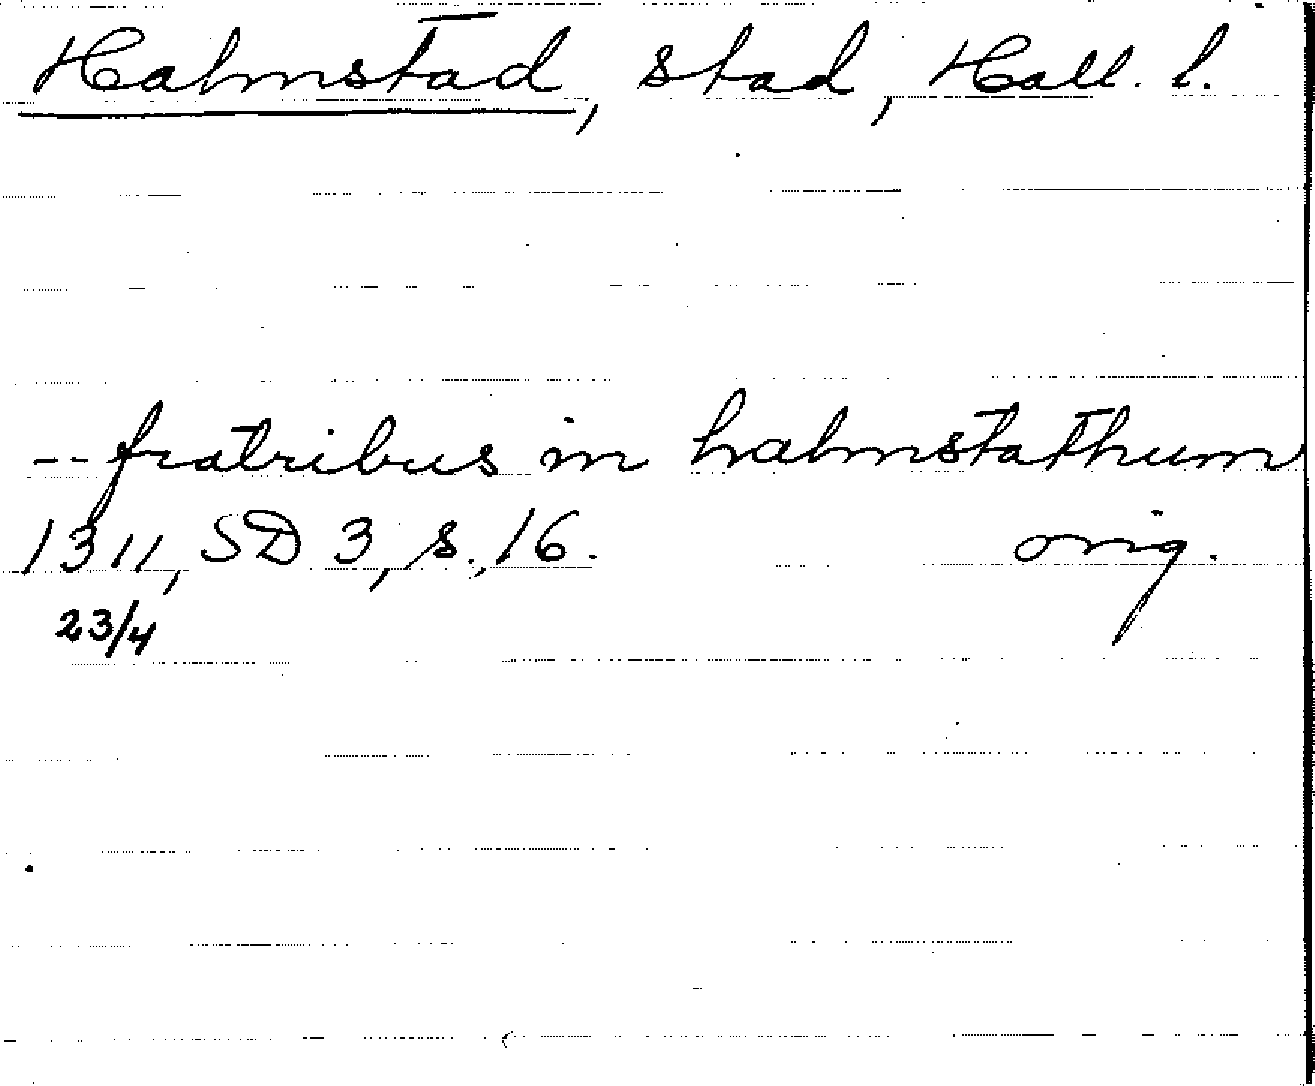 Halmstad, stad, Hall. l.
-- fratribus in halmstathum
1311, SD 3, s. 16. orig.
23/4